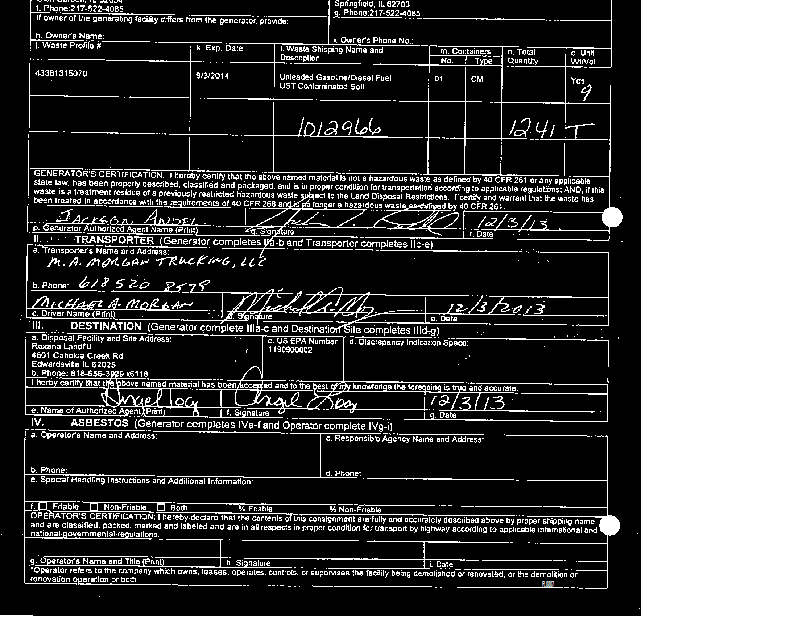 f. Phone:217-522-4085
Springfield, IL 62703
g. Phone:217-522-4085
If owner of the generating facility differs from the generator, provide:
h. Owner's Name:
i. Owner's Phone No.:
j. Waste Profile #
k. Exp. Date
l. Waste Shipping Name and Description
m. Containers
No.
Type
n. Total Quantity
o. Unit Wt/Vol
43381315070
9/3/2014
Unleaded Gasoline/Diesel Fuel
UST Contaminated Soil
01
CM
Yes
9
1012966
1241 T
GENERATOR'S CERTIFICATION: I hereby certify that the above named material is not a hazardous waste as defined by 40 CFR 261 or any applicable
state law, has been properly described, classified and packaged, and is in proper condition for transportation according to applicable regulations; AND, if this
waste is a treatment residue of a previously restricted hazardous waste subject to the Land Disposal Restrictions. I certify and warrant that the waste has
been treated in accordance with the requirements of 40 CFR 268 and is no longer a hazardous waste as defined by 40 CFR 261.
12/3/13
p. Generator Authorized Agent Name (Print)
q. Signature
r. Date
II. TRANSPORTER (Generator completes IIa-b and Transporter completes IIc-e)
a. Transporter's Name and Address:
M.A. MORGAN TRUCKING, LLC
b. Phone: 618 520 8579
MICHAEL A. MORGAN
12/3/2013
c. Driver Name (Print)
d. Signature
e. Date
III. DESTINATION (Generator complete IIIa-c and Destination Site completes IIId-g)
a. Disposal Facility and Site Address:
c. US EPA Number
d. Discrepancy Indication Space:
Roxana Landfill
1190900002
4601 Cahokia Creek Rd
Edwardsville IL 62025
b. Phone: 618-656-3926 x6116
I hereby certify that the above named material has been accepted and to the best of my knowledge the foregoing is true and accurate.
12/3/13
e. Name of Authorized Agent (Print)
f. Signature
g. Date
IV. ASBESTOS (Generator completes IVa-f and Operator complete IVg-i)
a. Operator's Name and Address:
c. Responsible Agency Name and Address:
b. Phone:
d. Phone:
e. Special Handling Instructions and Additional Information:
f. Friable Non-Friable Both % Friable % Non-Friable
OPERATOR'S CERTIFICATION: I hereby declare that the contents of this consignment are fully and accurately described above by proper shipping name
and are classified, packed, marked and labeled and are in all respects in proper condition for transport by highway according to applicable international and
national governmental regulations.
g. Operator's Name and Title (Print)
h. Signature
i. Date
*Operator refers to the company which owns, leases, operates, controls, or supervises the facility being demolished or renovated, or the demolition or
renovation operation or both